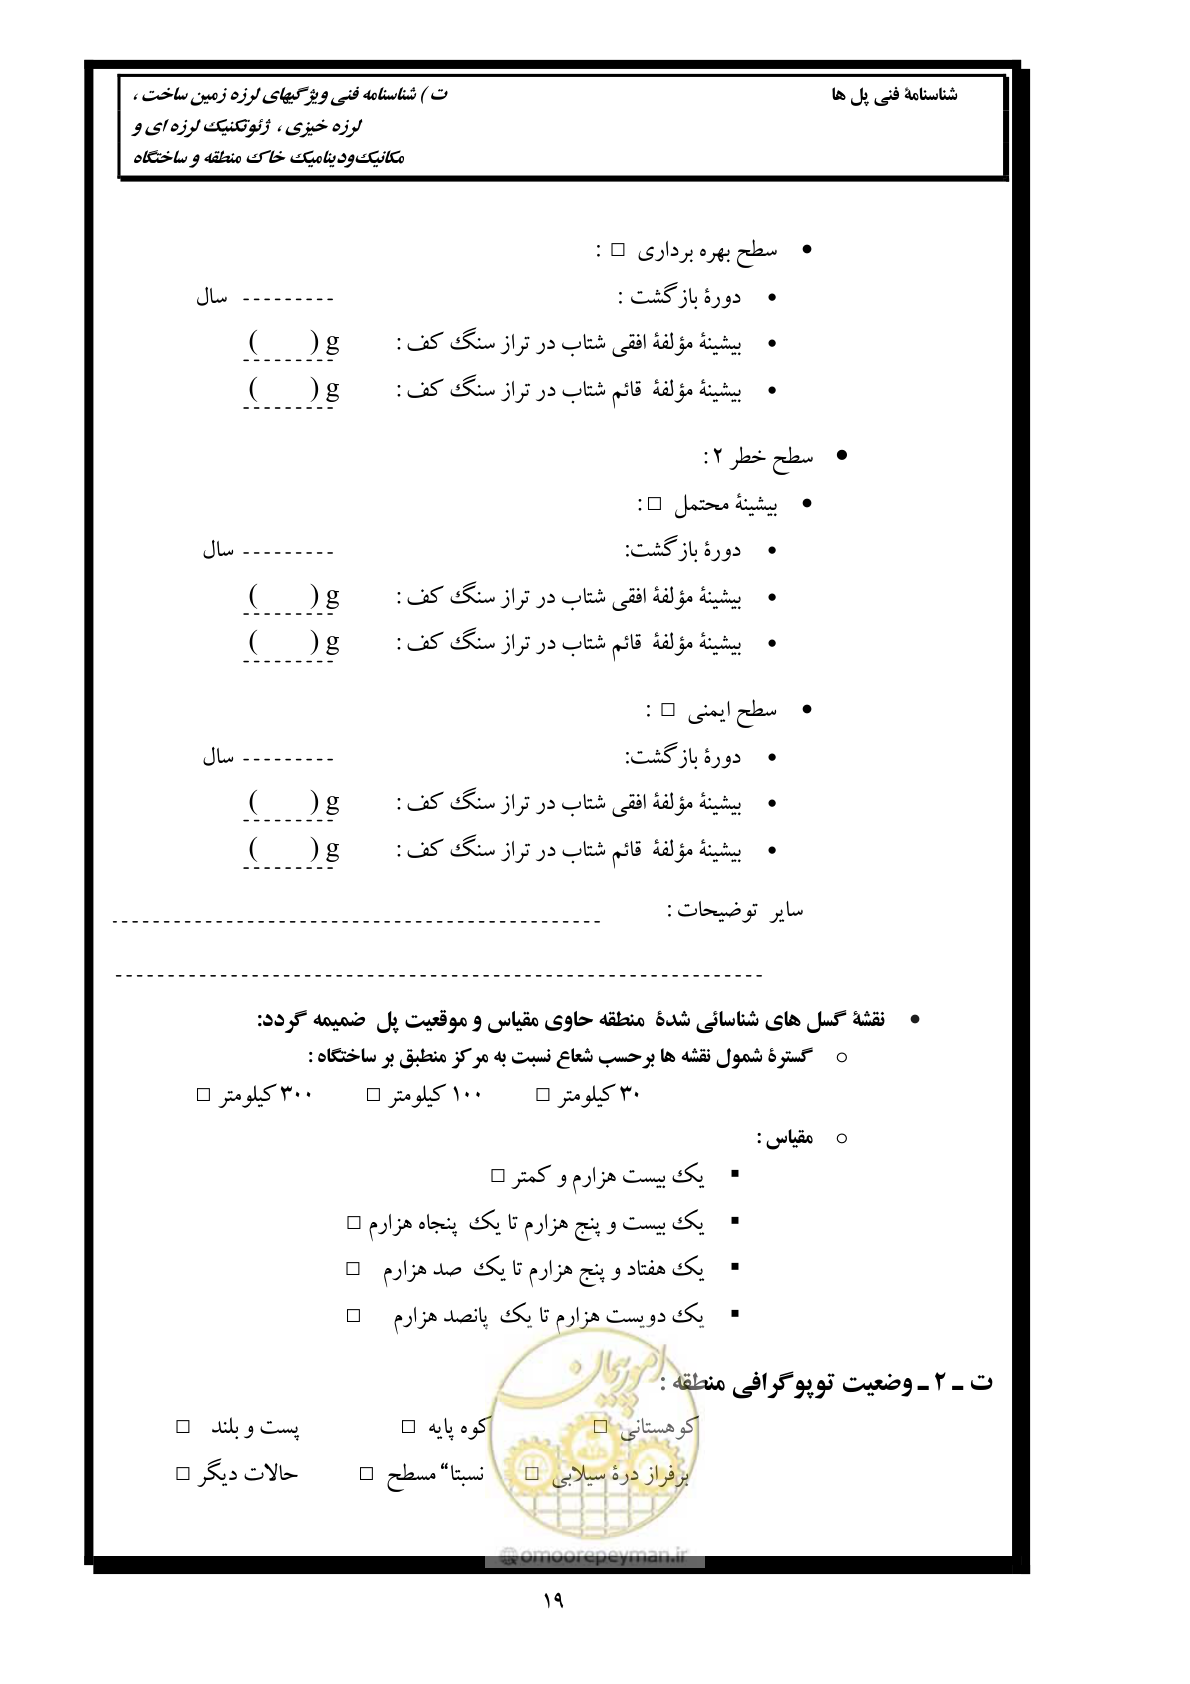 شناسنامۀ فنی پل ها
ت ) شناسنامه فنی ویژگیهای لرزه زمین ساخت ،
لرزه خیزی ، ژئوتکنیک لرزه ای و
مکانیک‌ودینامیک خاک منطقه و ساختگاه
• سطح بهره برداری □ :
• دورۀ بازگشت : --------- سال
• بیشینۀ مؤلفۀ افقی شتاب در تراز سنگ کف : (      ) g
• بیشینۀ مؤلفۀ قائم شتاب در تراز سنگ کف : (      ) g
• سطح خطر ۲ :
• بیشینۀ محتمل □ :
• دورۀ بازگشت: --------- سال
• بیشینۀ مؤلفۀ افقی شتاب در تراز سنگ کف : (      ) g
• بیشینۀ مؤلفۀ قائم شتاب در تراز سنگ کف : (      ) g
• سطح ایمنی □ :
• دورۀ بازگشت: --------- سال
• بیشینۀ مؤلفۀ افقی شتاب در تراز سنگ کف : (      ) g
• بیشینۀ مؤلفۀ قائم شتاب در تراز سنگ کف : (      ) g
سایر توضیحات : ------------------------------------------------
----------------------------------------------------------------
• نقشۀ گسل های شناسائی شدۀ منطقه حاوی مقیاس و موقعیت پل ضمیمه گردد:
○ گسترۀ شمول نقشه ها برحسب شعاع نسبت به مرکز منطبق بر ساختگاه :
۳۰ کیلومتر □ ۱۰۰ کیلومتر □ ۳۰۰ کیلومتر □
○ مقیاس :
▪ یک بیست هزارم و کمتر □
▪ یک بیست و پنج هزارم تا یک پنجاه هزارم □
▪ یک هفتاد و پنج هزارم تا یک صد هزارم □
▪ یک دویست هزارم تا یک پانصد هزارم □
امور پیمان
ت ـ ۲ ـ وضعیت توپوگرافی منطقه :
کوهستانی □ کوه پایه □ پست و بلند □
برفراز درۀ سیلابی □ نسبتا“ مسطح □ حالات دیگر □
@omoorepeyman.ir
۱۹